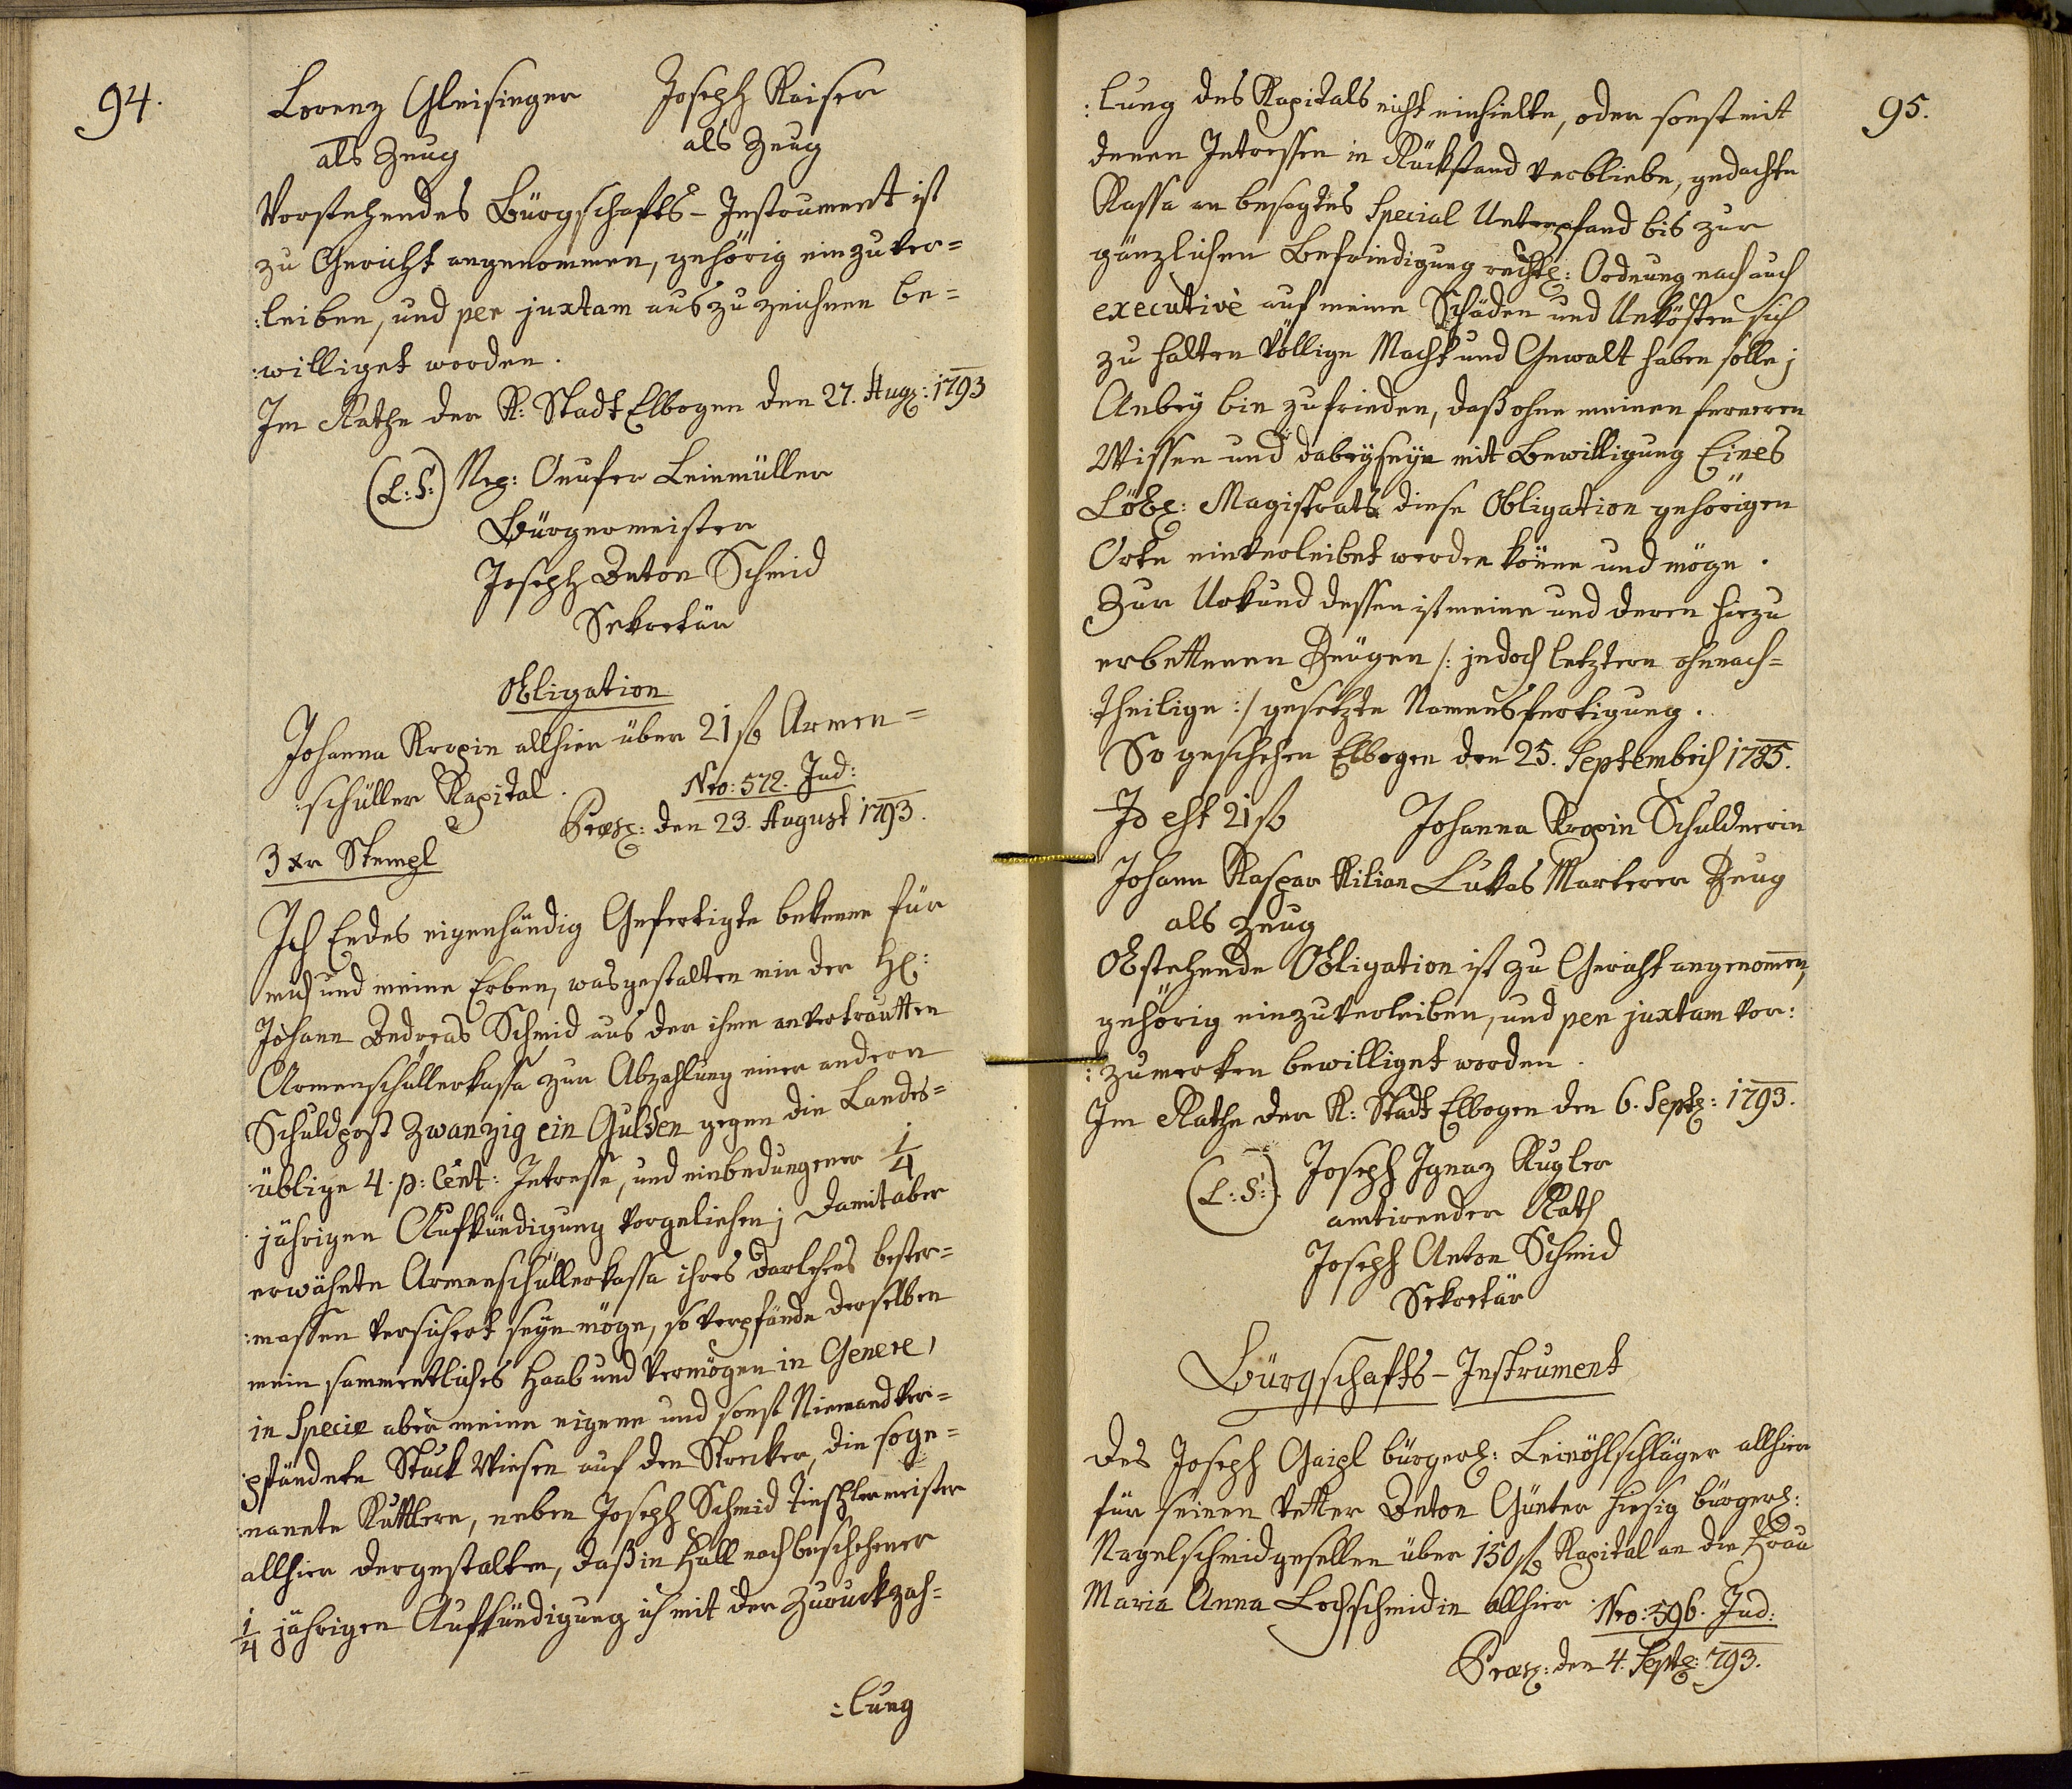 94.
Lorenz Gleisinger Joseph Kaiser
als Zeug als Zeug
Vorstehendes Bürgschafts-Instrument ist
zu Gericht angenommen, gehörig einzuver=
:leiben, und per juxtam auszuzeichnen be=
:williget worden.
Im Rathe der K: Stadt Elbogen den 27. Aug: 1793
(L:S:) Neg: Onufer Leinmüller
Bürgermeister
Joseph Anton Schmid
Sekretär
Obligation
Johanna Kropin allhier über 21 f Armen=
:schüller Kapital. Nro: 572. Jud:
Praes: den 23. August 1793.
3 xr Stempl
Ich Endes eigenhändig Gefertigte bekenne für
mich und meine Erben, wasgestalten mir der H:
Johann Andreas Schmid aus der ihme anvertrautten
Armenschüllerkassa zur Abzahlung einer andern
Schuldpost Zwanzig ein Gulden gegen die Landes=
:üblige 4. p: Cent: Intresse, und einbedungener 1/4
jährigen Aufkündigung vorgeliehen; Damit aber
erwähnte Armenschüllerkassa ihres darlehens bester=
:massen versichert seyn möge, so verpfände derselben
mein sammentliches Haab und Vermögen in Genere,
in Specie aber meine eigene und sonst Niemand ver=
:pfändete Stück Wiesen auf den Strecker, die soge=
:nannte Kuttlern, neben Joseph Schmid Tieschlermeister
allhier dergestalten, daß in Fall nach beschehener
1/4 jährigen Aufkündigung ich mit der Zuruckzah=
:lung
95.
:lung des Kapitals nicht einhielte, oder sonst mit
denen Intressen in Rückstand verbliebe, gedachte
Kassa an besagtes Special Unterpfand bis zur
gänzlichen Befriedigung rechtl: Ordnung nach auch
executivè auf meine Schäden und Unkösten sich
zu halten völlige Macht und Gewalt haben solle;
Anbey bin zufrieden, daß ohne meinen ferneren
Wissen und dabeyseyn mit Bewilligung Eines
Löbl: Magistrats diese Obligation gehörigen
Orte einverleibet werden könne und möge.
Zur Urkund dessen ist meine und deren hiezu
erbettenen Zeügen /: jedoch letztern ohnnach=
:theilige :/ gesetzte Namensfertigung.
So geschehen Elbogen den 25. Septembris 1785.
Id est 21 f Johanna Kropin Schuldnerin
Johann Kaspar Kilian Lukas Marterer Zeug
als Zeug
Obstehende Obligation ist zu Gericht angenom̄en,
gehörig einzuverleiben, und per juxtam vor:
:zumerken bewilliget worden.
Im Rathe der K: Stadt Elbogen den 6. Sept: 1793.
(L:S:) Joseph Ignaz Kugler
amtirender Rath
Joseph Anton Schmid
Sekretär
Bürgschafts-Instrument
des Joseph Gaipl bürgerl: Leinöhlschläger allhier
für seinen Vetter Anton Günter hiesig bürgerl:
Nagelschmidgesellen über 150 f Kapital an die Frau
Maria Anna Lochschmidin allhier. Nro: 596. Jud:
Praes: den 4. Sept: 793.